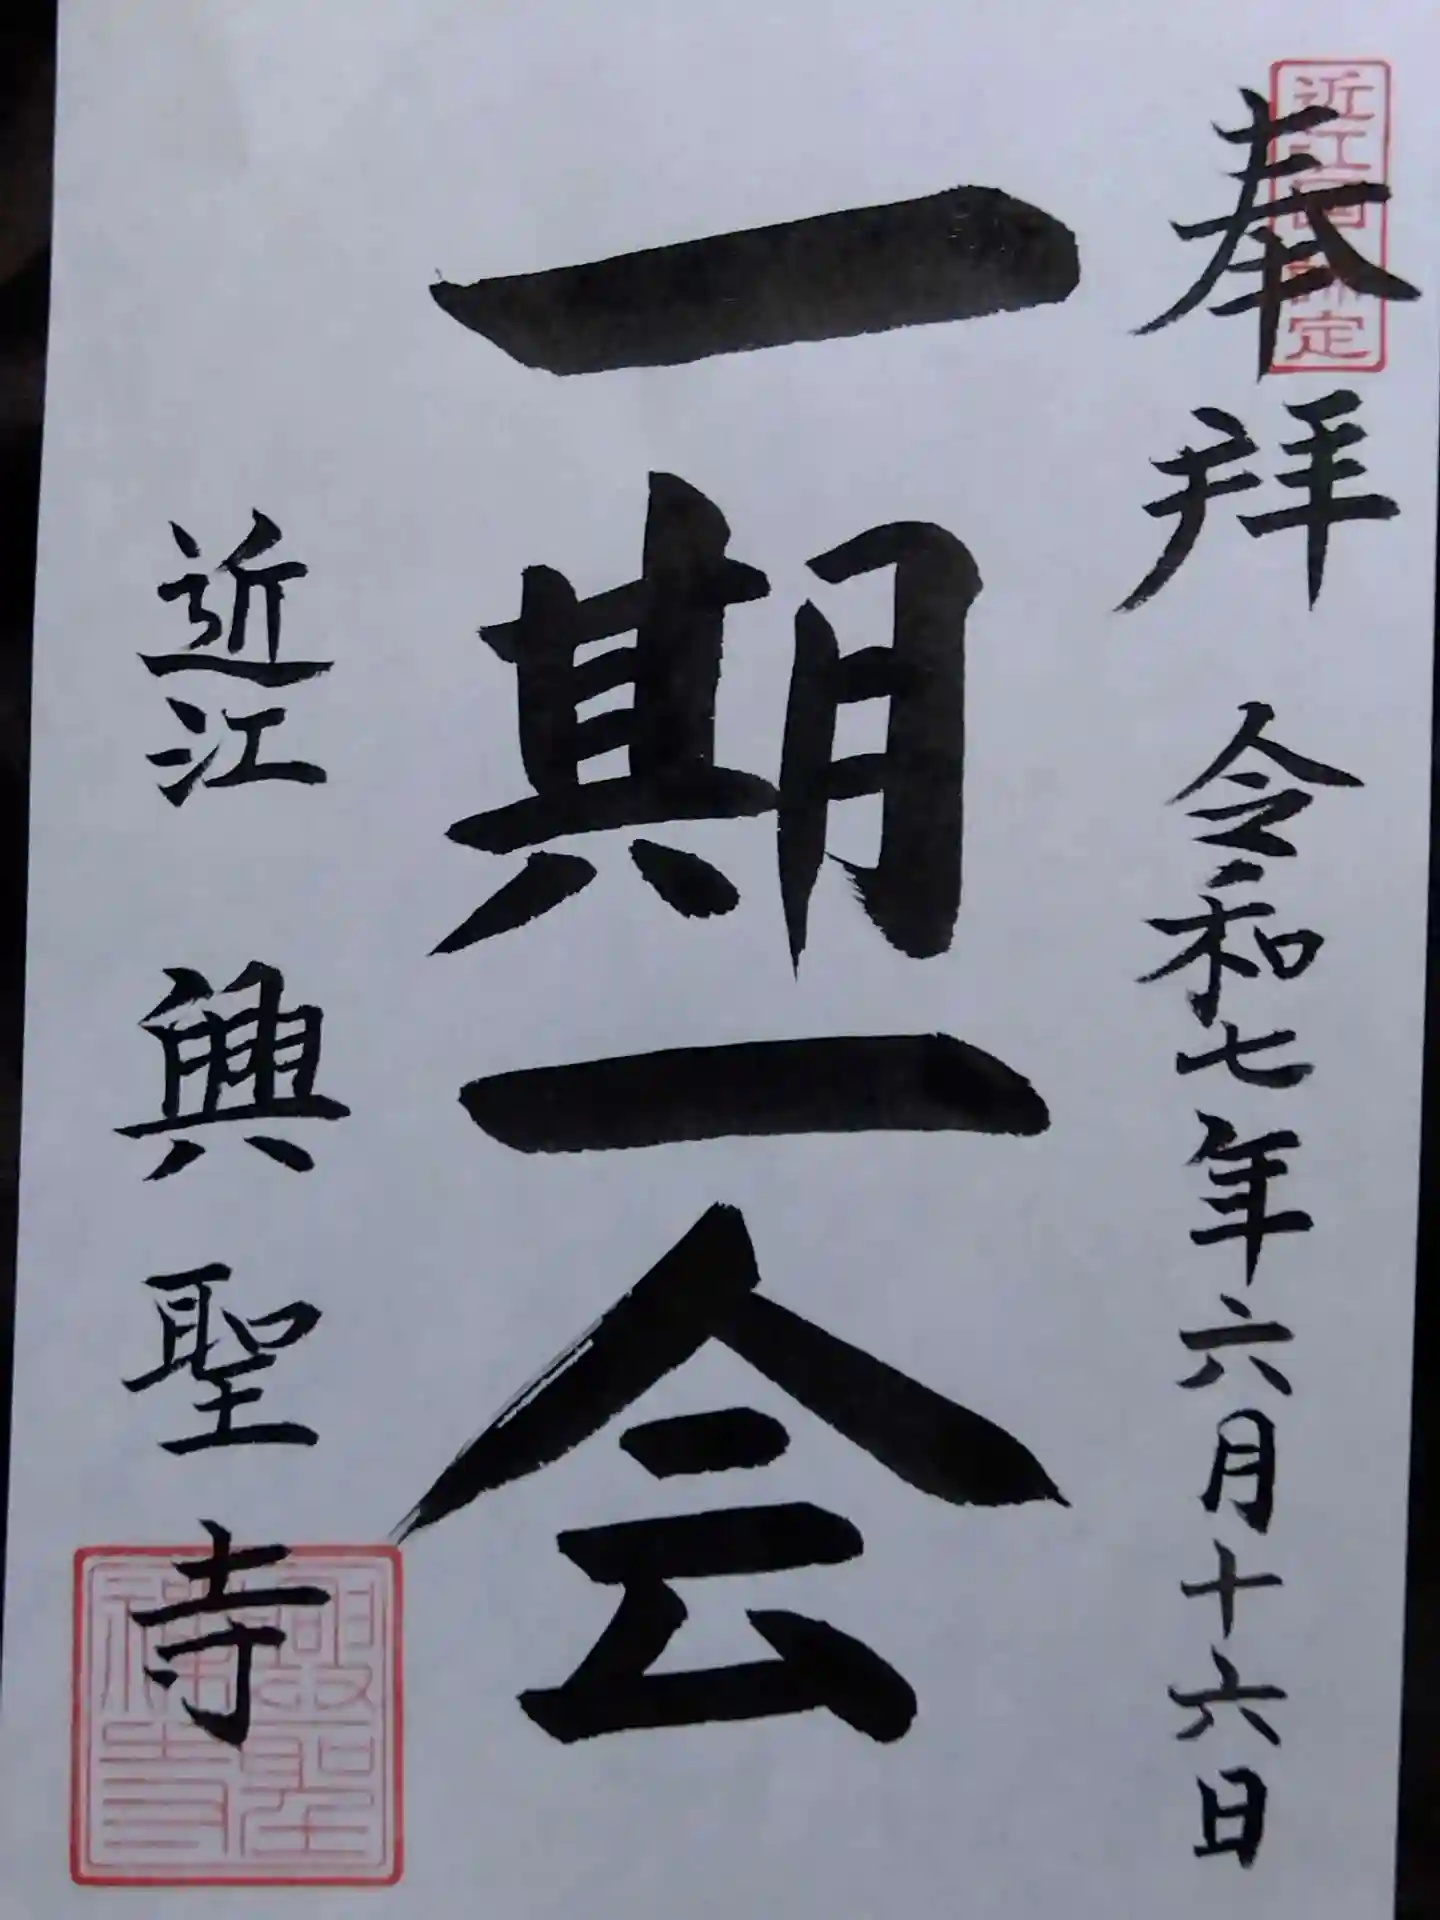 奉拝 令和七年六月十六日
一期一会
近江 興聖寺